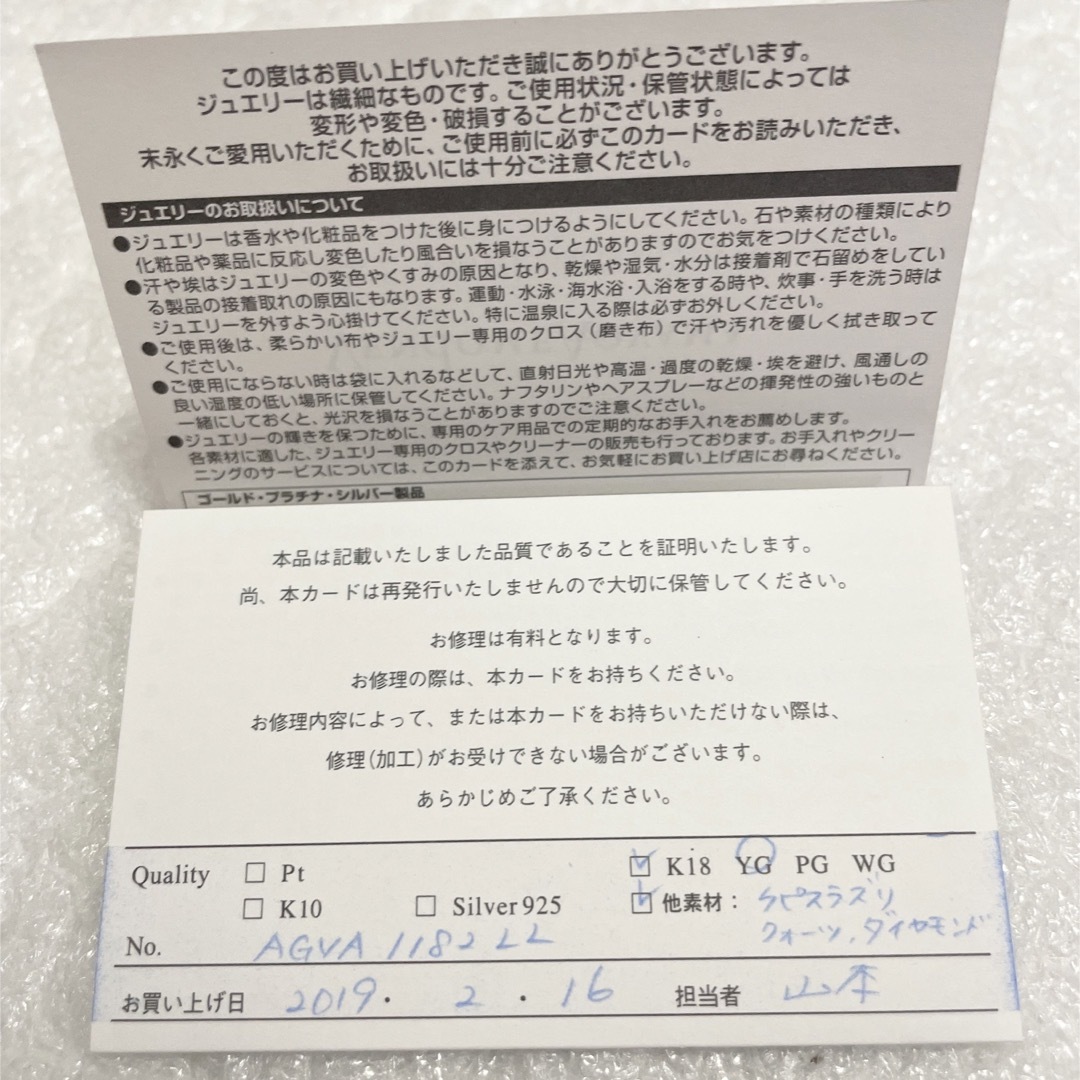 この度はお買い上げいただき誠にありがとうございます。
ジュエリーは繊細なものです。ご使用状況・保管状態によっては
変形や変色・破損することがございます。
末永くご愛用いただくために、ご使用前に必ずこのカードをお読みいただき、
お取扱いには十分ご注意ください。
ジュエリーのお取扱いについて
●ジュエリーは香水や化粧品をつけた後に身につけるようにしてください。石や素材の種類により
化粧品や薬品に反応し変色したり風合いを損なうことがありますのでお気をつけください。
●汗や埃はジュエリーの変色やくすみの原因となり、乾燥や湿気・水分は接着剤で石留めをしてい
る製品の接着取れの原因にもなります。運動・水泳・海水浴・入浴をする時や、炊事・手を洗う時は
ジュエリーを外すよう心掛けてください。特に温泉に入る際は必ずお外しください。
●ご使用後は、柔らかい布やジュエリー専用のクロス（磨き布）で汗や汚れを優しく拭き取って
ください。
●ご使用にならない時は袋に入れるなどして、直射日光や高温・過度の乾燥・埃を避け、風通しの
良い湿度の低い場所に保管してください。ナフタリンやヘアスプレーなどの揮発性の強いものと
一緒にしておくと、光沢を損なうことがありますのでご注意ください。
●ジュエリーの輝きを保つために、専用のケア用品での定期的なお手入れをお薦めします。
各素材に適した、ジュエリー専用のクロスやクリーナーの販売も行っております。お手入れやクリー
ニングのサービスについては、このカードを添えて、お気軽にお買い上げ店にお尋ねください。
ゴールド・プラチナ・シルバー製品
本品は記載いたしました品質であることを証明いたします。
尚、本カードは再発行いたしませんので大切に保管してください。
お修理は有料となります。
お修理の際は、本カードをお持ちください。
お修理内容によって、または本カードをお持ちいただけない際は、
修理(加工)がお受けできない場合がございます。
あらかじめご了承ください。
Quality □ Pt ☑ K18 YG PG WG
□ K10 □ Silver 925 ☑ 他素材： ラピスラズリ
クォーツ、ダイヤモンド
No. AGVA 1182 LL
お買い上げ日 2019・ 2 ・16 担当者 山本